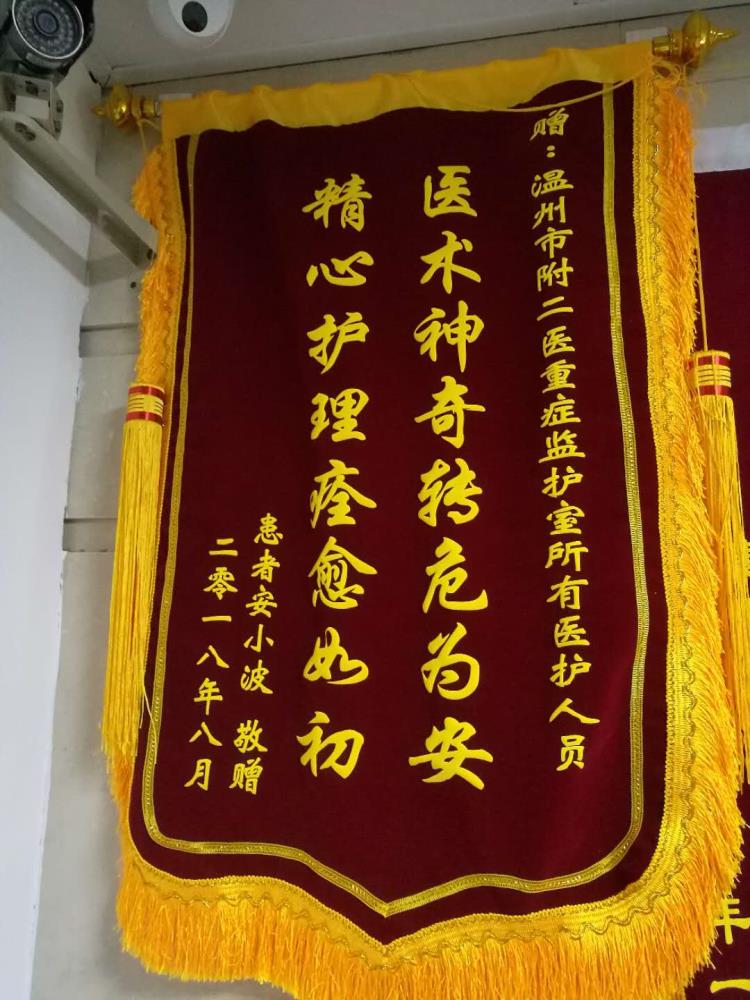 赠：温州市附二医重症监护室所有医护人员
医术神奇转危为安
精心护理痊愈如初
患者安小波 敬赠
二零一八年八月
年一